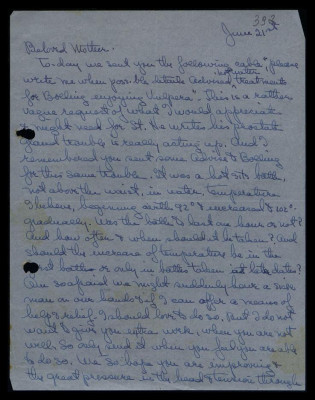 398
June 21st
Beloved Mother.
Today we send you the following cable "please
write me when possible details advised hot water treatments
for Boeling enjoying Vulpera". This is a rather
vague request of what I would appreciate
& might need for St. He writes his prostate
gland trouble is really acting up. And I
remembered you sent some advice to Boeling
for this same trouble. It was a hot sitz bath,
not above the waist, in water temperature
I believe, beginning with 92° & increased to 102°
gradually. Was the bath to last an hour or not?
And how often & when should it be taken? And
should the increase of temperature be in the
first baths or only in baths taken at late dates?
Am so afraid we might suddenly have a sick
man on our hands & if I can offer a means of
help & relief I should love to do so. But I do not
want to give you extra work, when you are not
well. So only send it when you feel you are able
to do so. We so hope you are improving &
the great pressure in the head & tension through